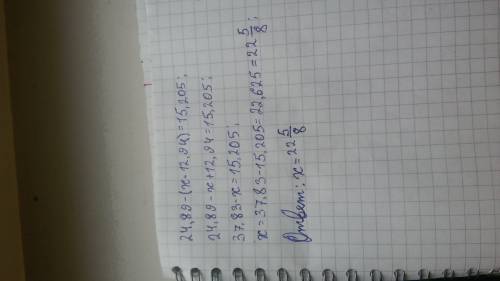 24,89-(x-12,94)=15,205;
24,89-x+12,94=15,205;
37,83-x=15,205;
x=37,83-15,205=22,625=22 5/8;
Ответ: x=22 5/8